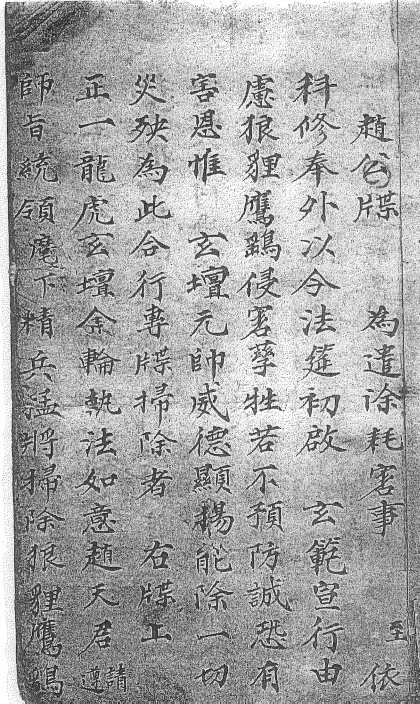 趙公牒 為遣除耗害事 至 依
科修奉外以今法筵初啟 玄範宣行由
慮狼狸鷹鷂侵害孳牲若不預防誠恐有
害恩惟 玄壇元帥威德顯揚能除一切
災殃為此合行專牒掃除者 右牒上
正一龍虎玄壇金輪執法如意趙天君 請遵
師旨統領麾下精兵猛將掃除狼狸鷹鷂